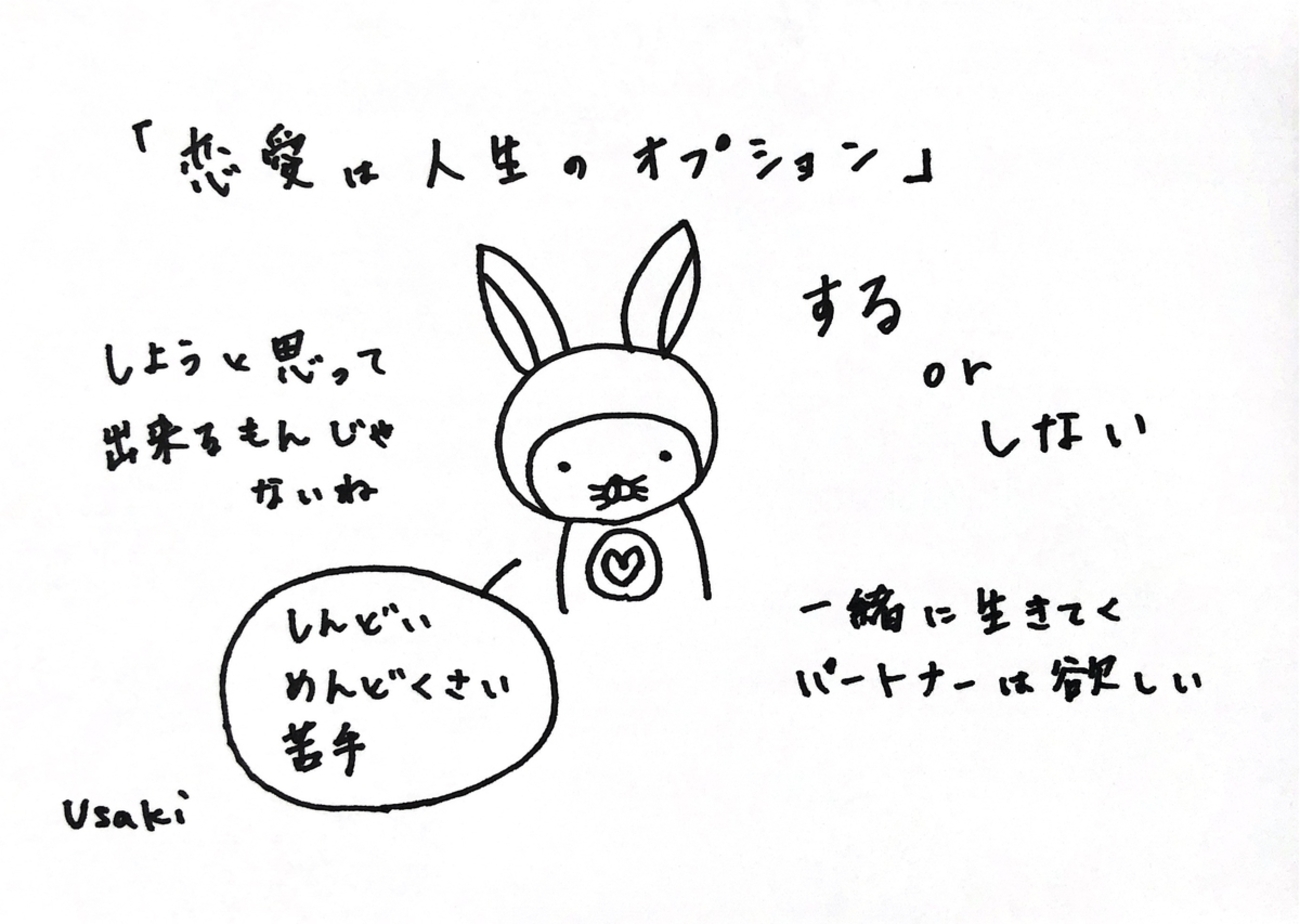 「恋愛は人生のオプション」
する
or
しない
しようと思って
出来るもんじゃ
ないね
しんどい
めんどくさい
苦手
一緒に生きてく
パートナーは欲しい
Usaki